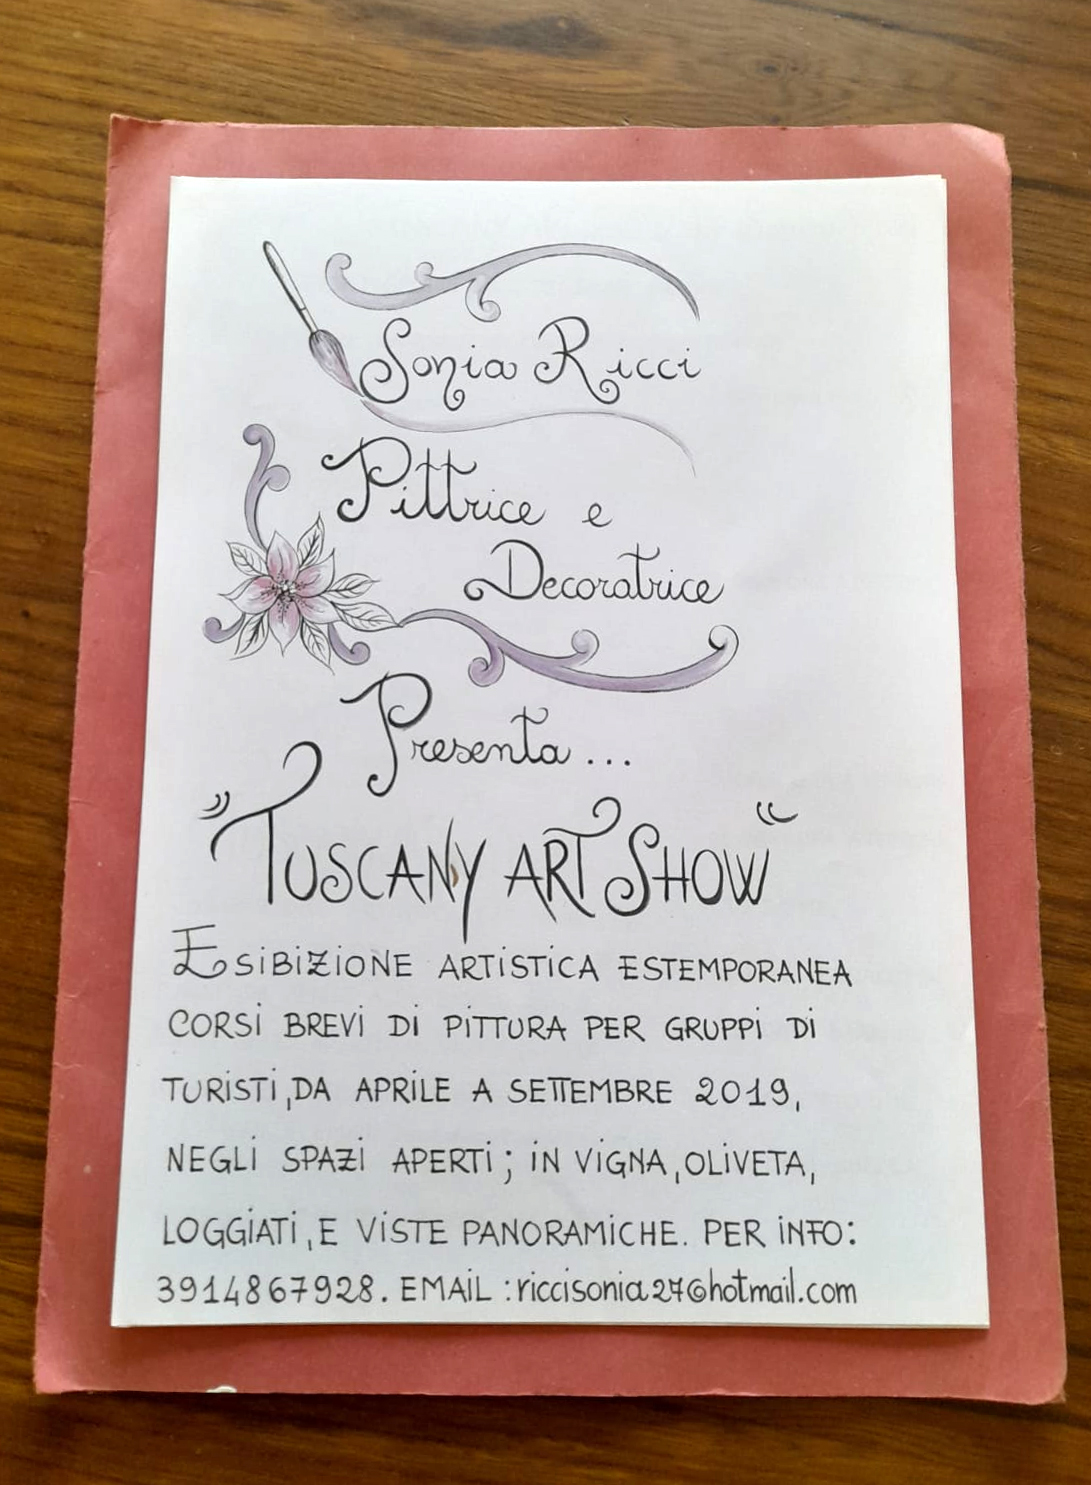 Sonia Ricci
Pittrice e
Decoratrice
Presenta...
"TUSCANY ART SHOW"
ESIBIZIONE ARTISTICA ESTEMPORANEA
CORSI BREVI DI PITTURA PER GRUPPI DI
TURISTI, DA APRILE A SETTEMBRE 2019,
NEGLI SPAZI APERTI; IN VIGNA, OLIVETA,
LOGGIATI, E VISTE PANORAMICHE. PER INFO:
3914867928. EMAIL: riccisonia27@hotmail.com